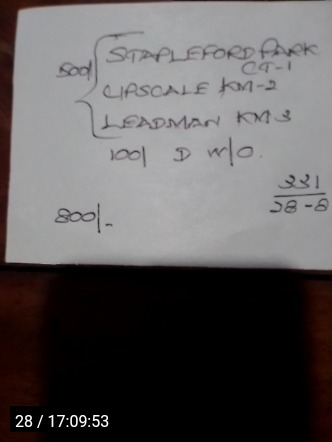 STAPLEFORD PARK
500/ CT-1
UPSCALE KM-2
LEADMAN KM 3
100/ D W/O.
331
28-8
800/-
28 / 17:09:53